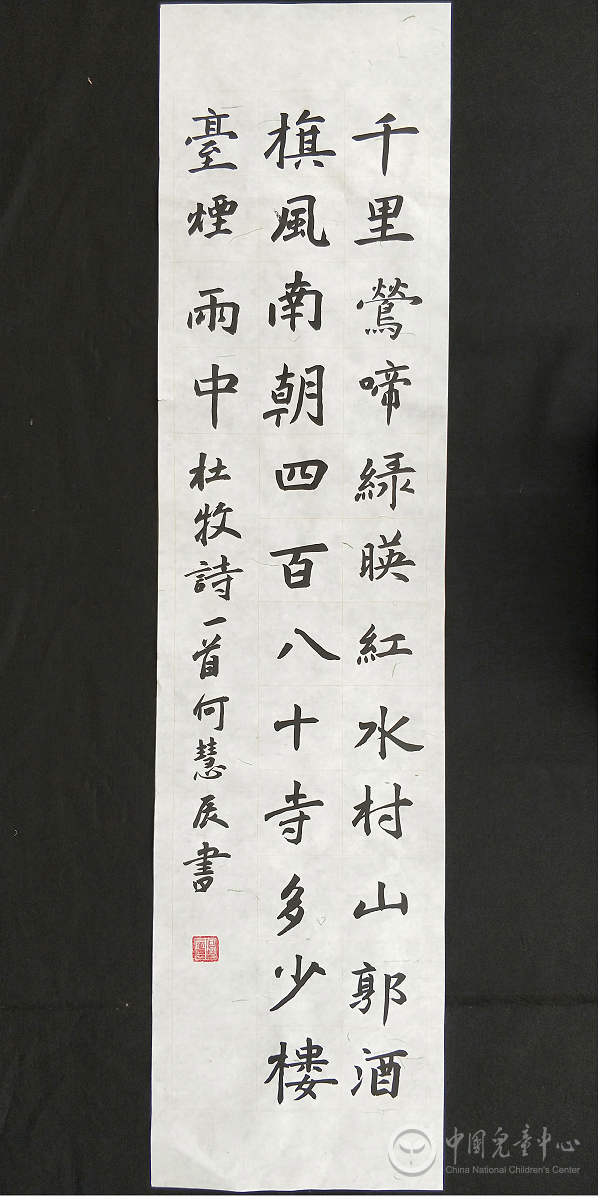 千里鶯啼緑暎紅水村山郭酒
旗風南朝四百八十寺多少樓
臺煙雨中杜牧詩一首何慧辰書
中國兒童中心
China National Children's Center